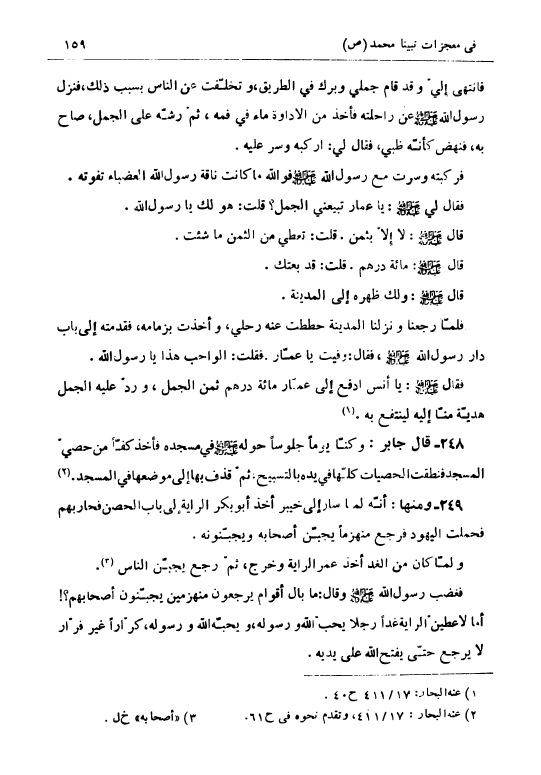 في معجزات نبينا محمد (ص) ١٥٩
فانتهى إليّ و قد قام جملي وبرك في الطريق، و تخلّفت عن الناس بسبب ذلك، فنزل
رسول الله ﷺ عن راحلته فأخذ من الاداوة ماء في فمه ، ثمّ رشّه على الجمل، صاح
به، فنهض كأنّه ظبي، فقال لي: اركبه وسر عليه .
فركبته وسرت مع رسول الله ﷺ فوالله ما كانت ناقة رسول الله العضباء تفوته .
فقال لي ﷺ : يا عمار تبيعني الجمل؟ قلت: هو لك يا رسول الله .
قال ﷺ : لا إلاّ بثمن . قلت: تعطي من الثمن ما شئت .
قال ﷺ : مائة درهم . قلت: قد بعتك .
قال ﷺ : ولك ظهره إلى المدينة .
فلمّا رجعنا و نزلنا المدينة حططت عنه رحلي، و أخذت بزمامه، فقدمته إلى باب
دار رسول الله ﷺ ، فقال: وفيت يا عمّار . فقلت: الواجب هذا يا رسول الله .
فقال ﷺ : يا أنس ادفع إلى عمّار مائة درهم ثمن الجمل ، و ردّ عليه الجمل
هديّة منّا إليه لينتفع به .(١)
٢٤٨ـ قال جابر : وكنّا يوماً جلوساً حوله ﷺ في مسجده فأخذ كفّاً من حصيّ
المسجد فنطقت الحصيات كلّها في يده بالتسبيح، ثمّ قذف بها إلى موضعها في المسجد.(٢)
٢٤٩ـ ومنها : أنّه لما سار إلى خيبر أخذ أبو بكر الراية إلى باب الحصن فحاربهم
فحملت اليهود فرجع منهزماً يجبّن أصحابه ويجبّنونه .
و لمّا كان من الغد أخذ عمر الراية وخرج، ثمّ رجع يجبّن الناس (٣).
فغضب رسول الله ﷺ وقال: ما بال أقوام يرجعون منهزمين يجبّنون أصحابهم؟!
أما لاعطينّ الراية غداً رجلا يحبّ الله و رسوله، و يحبّه الله و رسوله، كرّاراً غير فرّار
لا يرجع حتّى يفتح الله على يديه .
١) عنه البحار: ٤١١/١٧ ح ٤٠ .
٢) عنه البحار : ٤١١/١٧، وتقدم نحوه في ح ٦١. ٣) «أصحابه» خ ل .